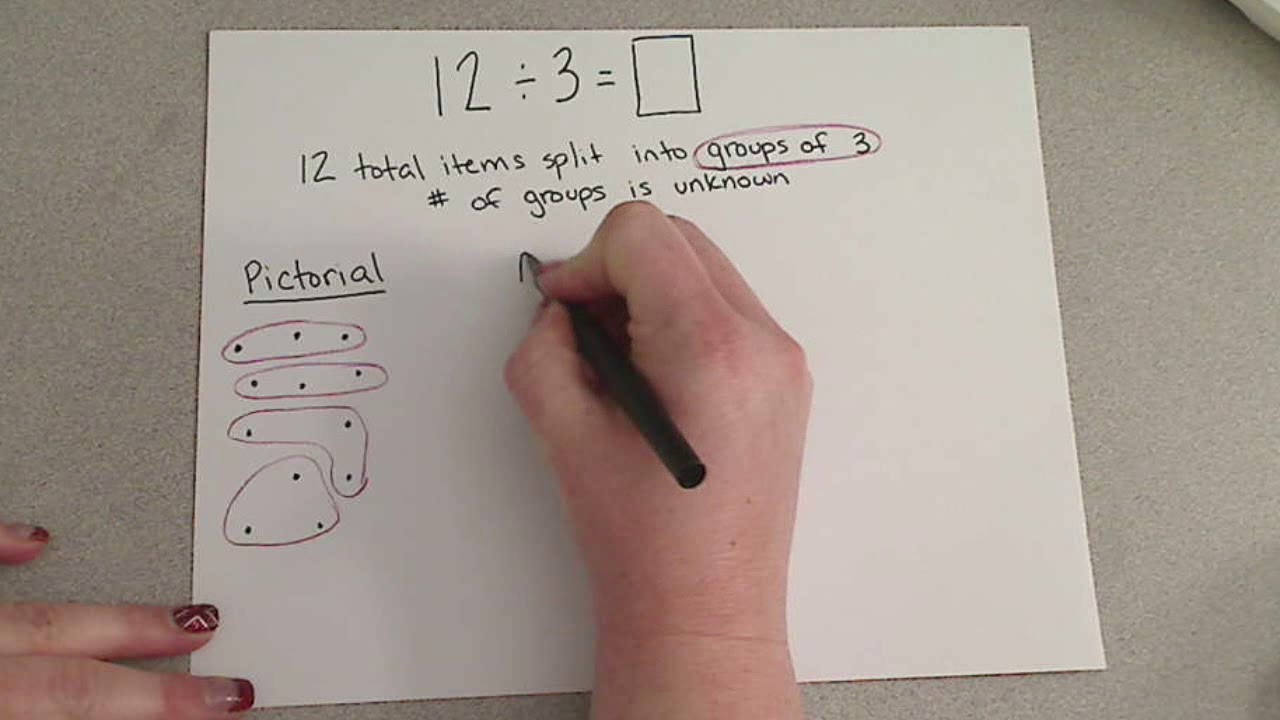 12 ÷ 3 = □
12 total items split into groups of 3
# of groups is unknown
Pictorial